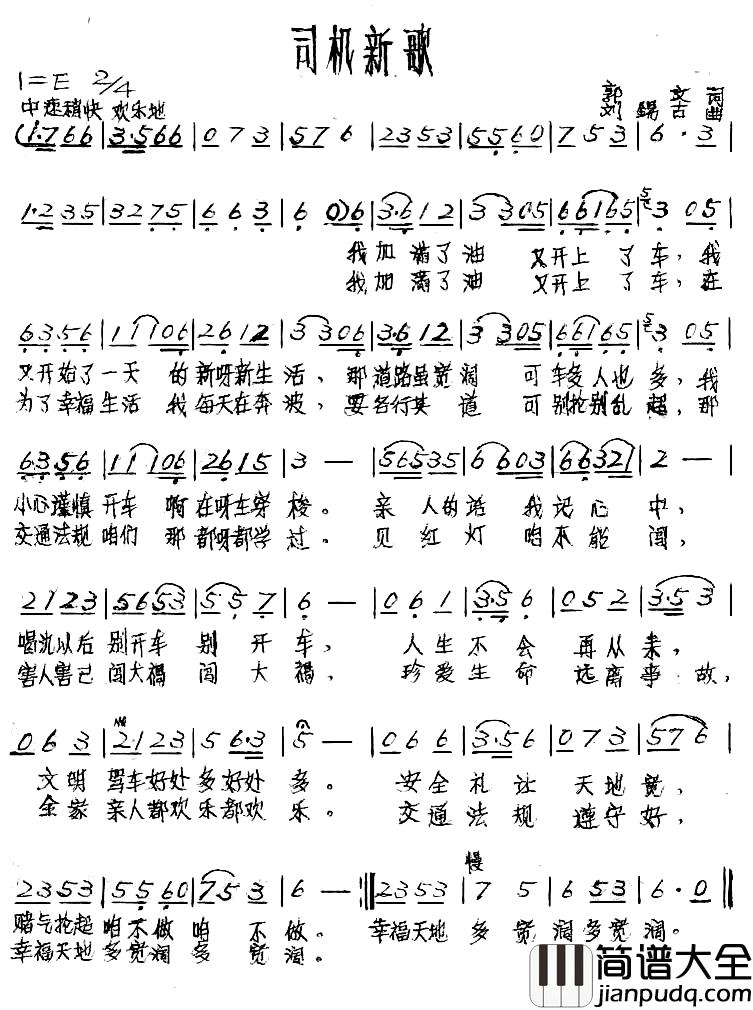 司机新歌
1=E 2/4
郭文 词
中速稍快 欢乐地
刘锡古 曲
(1·766 | 3·566 | 073 | 576 | 2353 | 5560 | 753 | 6·3
1·235 | 3275 | 663 | 60)6 | 3·612 | 3305 | 66165 | 3 05 |
我加满了油 又开上了车,我
我加满了油 又开上了车,在
6356 | 11106 | 2612 | 3306 | 3·612 | 3305 | 66165 | 3 05 |
又开始了一天 的新呀新生活, 那道路虽宽阔 可车多人也多,我
为了幸福生活 我每天在奔波,要各行其道 可别抢别乱超,那
6356 | 11106 | 2615 | 3 — | 56535 | 6603 | 66321 | 2 — |
小心谨慎开车 啊在呀在穿梭。 亲人的话 我记心中,
交通法规咱们 那都呀都学过。 见红灯 咱不能闯,
2123 | 5653 | 557 | 6 — | 061 | 3·56 | 052 | 3·53 |
喝洒以后别开车 别开车, 人生不会再从来,
害人害己闯大祸 闯大祸, 珍爱生命 远离事故,
063 | 2123 | 56·3 | 5 — | 066 | 3·56 | 073 | 576 |
文明驾车好处多好处多。 安全礼让 天地宽,
全家亲人都欢乐都欢乐。 交通法规 遵守好,
慢
2353 | 5560 | 753 | 6 — :‖ 2353 | 75 | 653 | 6·0 ‖
赌气抢超咱不做咱不做。 幸福天地多宽阔多宽阔。
幸福天地多宽阔多宽阔。
简谱大全
jianpudq.com